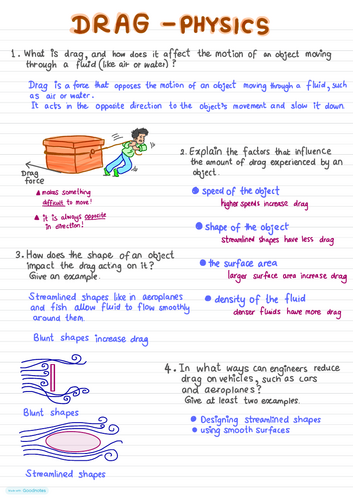 DRAG - PHYSICS
1. What is drag, and how does it affect the motion of an object moving
through a fluid (like air or water)?
Drag is a force that opposes the motion of an object moving through a fluid, such
as air or water.
It acts in the opposite direction to the object's movement and slow it down.
Drag
force
makes something
difficult to move!
it is always opposite
in direction!
2. Explain the factors that influence
the amount of drag experienced by an
object.
speed of the object
higher speeds increase drag
shape of the object
streamlined shapes have less drag
the surface area
larger surface area increase drag
density of the fluid
denser fluids have more drag
3. How does the shape of an object
impact the drag acting on it?
Give an example.
Streamlined shapes like in aeroplanes
and fish allow fluid to flow smoothly
around them.
Blunt shapes increase drag
Blunt shapes
Streamlined shapes
4. In what ways can engineers reduce
drag on vehicles, such as cars
and aeroplanes?
Give at least two examples.
Designing streamlined shapes
using smooth surfaces
Made with Goodnotes